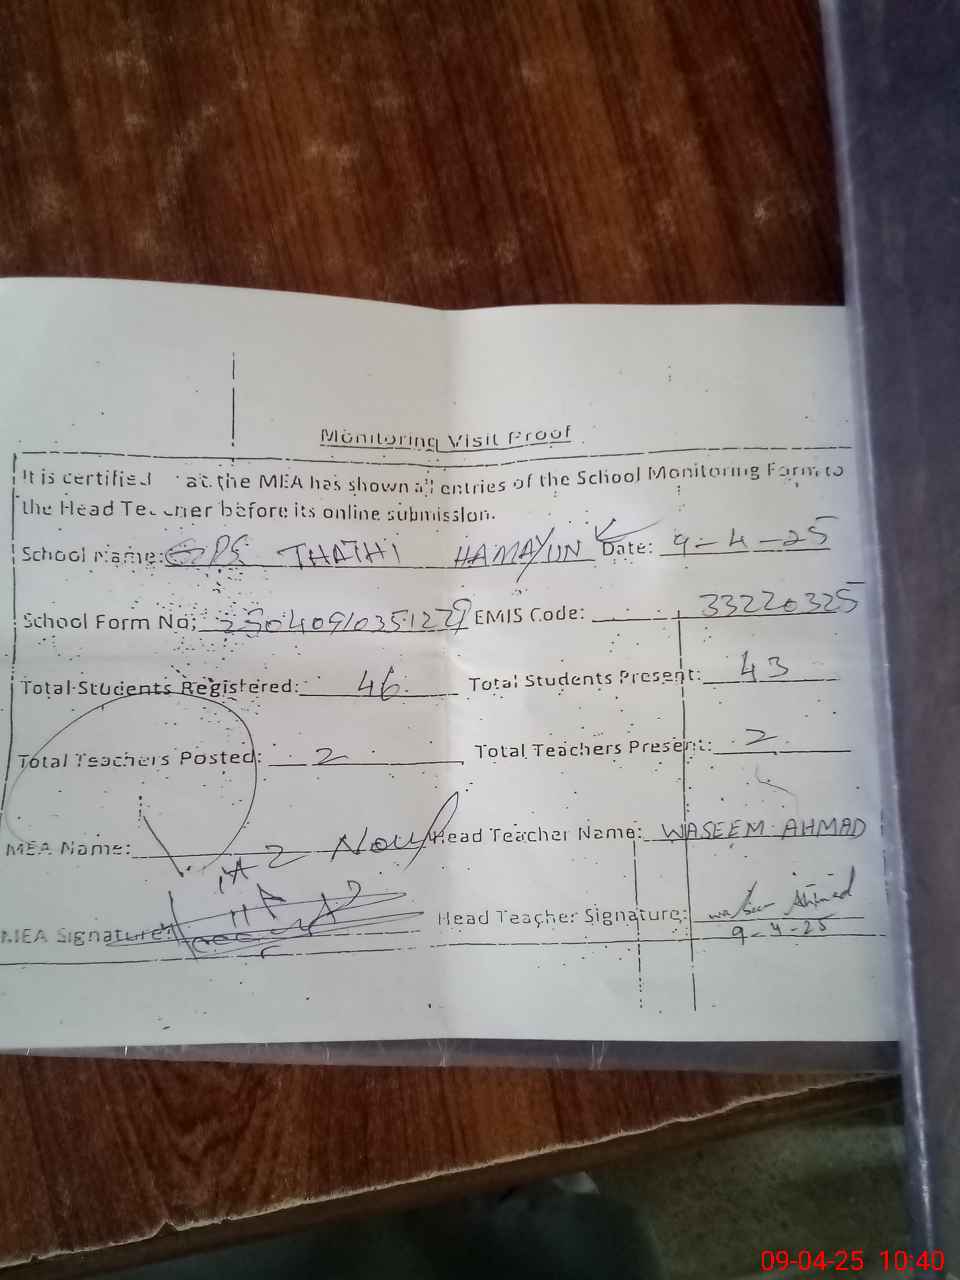 Monitoring Visit Proof
It is certified at the MEA has shown all entries of the School Monitoring Form to
the Head Teacher before its online submission.
School Name: GPS THATHI HAMAYUN Date: 9-4-25
School Form No: EMIS Code: 33220325
Total Students Registered: 46 Total Students Present: 43
Total Teachers Posted: 2 Total Teachers Present: 2
MEA Name: Head Teacher Name: WASEEM AHMAD
MEA Signature: Head Teacher Signature: Waseem Ahmad
9-4-25
09-04-25 10:40